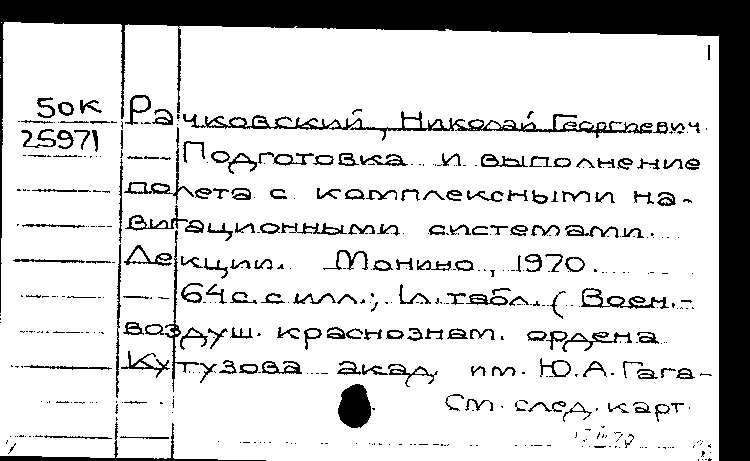 50к Рачковский, Николай Георгиевич.
25971 Подготовка и выполнение
полета с комплексными на-
вигационными системами.
Лекции. Монино, 1970.
64с. с илл.; 1л. табл. (Воен.-
воздуш. краснознам. ордена
Кутузова акад. им. Ю.А. Гага-
См. след. карт.